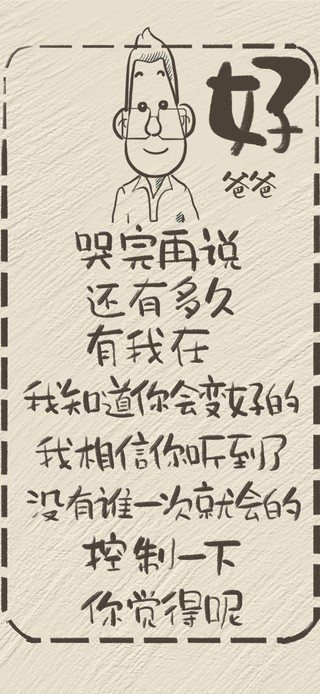 好
爸爸
哭完再说
还有多久
有我在
我知道你会变好的
我相信你听到了
没有谁一次就会的
控制一下
你觉得呢